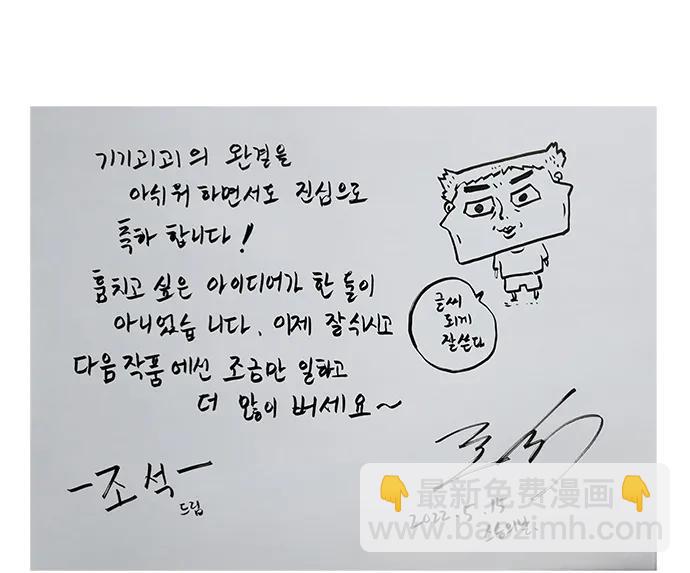 기기괴괴의 완결을
아쉬워 하면서도 진심으로
축하 합니다!
훔치고 싶은 아이디어가 한 둘이
아니었습니다. 이제 잘 쉬시고
다음 작품에선 조금만 일하고
더 많이 버세요~
글씨
되게
잘쓴다
-조석-
드림
2022.5.15
스승의날.
最新免费漫画
www.baozimh.com